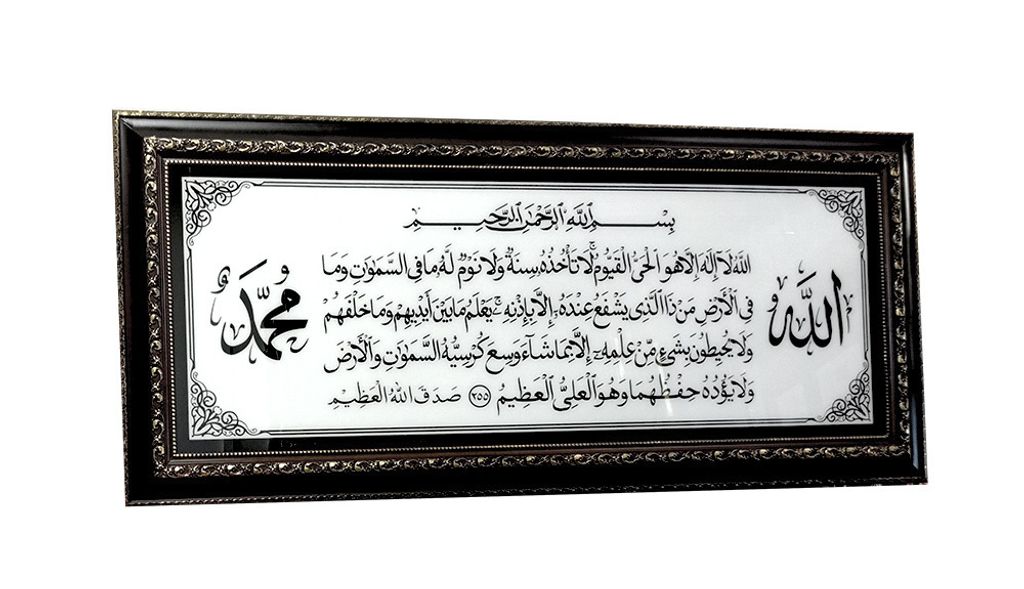 بِسْمِ ٱللَّهِ ٱلرَّحْمَٰنِ ٱلرَّحِيمِ
ٱللَّهُ لَآ إِلَٰهَ إِلَّا هُوَ ٱلْحَىُّ ٱلْقَيُّومُ ۚ لَا تَأْخُذُهُۥ سِنَةٌ وَلَا نَوْمٌ ۚ لَّهُۥ مَا فِى ٱلسَّمَٰوَٰتِ وَمَا
فِى ٱلْأَرْضِ ۗ مَن ذَا ٱلَّذِى يَشْفَعُ عِندَهُۥٓ إِلَّا بِإِذْنِهِۦ ۚ يَعْلَمُ مَا بَيْنَ أَيْدِيهِمْ وَمَا خَلْفَهُمْ
وَلَا يُحِيطُونَ بِشَىْءٍ مِّنْ عِلْمِهِۦٓ إِلَّا بِمَا شَآءَ ۚ وَسِعَ كُرْسِيُّهُ ٱلسَّمَٰوَٰتِ وَٱلْأَرْضَ
وَلَا يَـُٔودُهُۥ حِفْظُهُمَا ۚ وَهُوَ ٱلْعَلِىُّ ٱلْعَظِيمُ ٢٥٥ صَدَقَ اللهُ الْعَظِيْمِ
الله
محمد